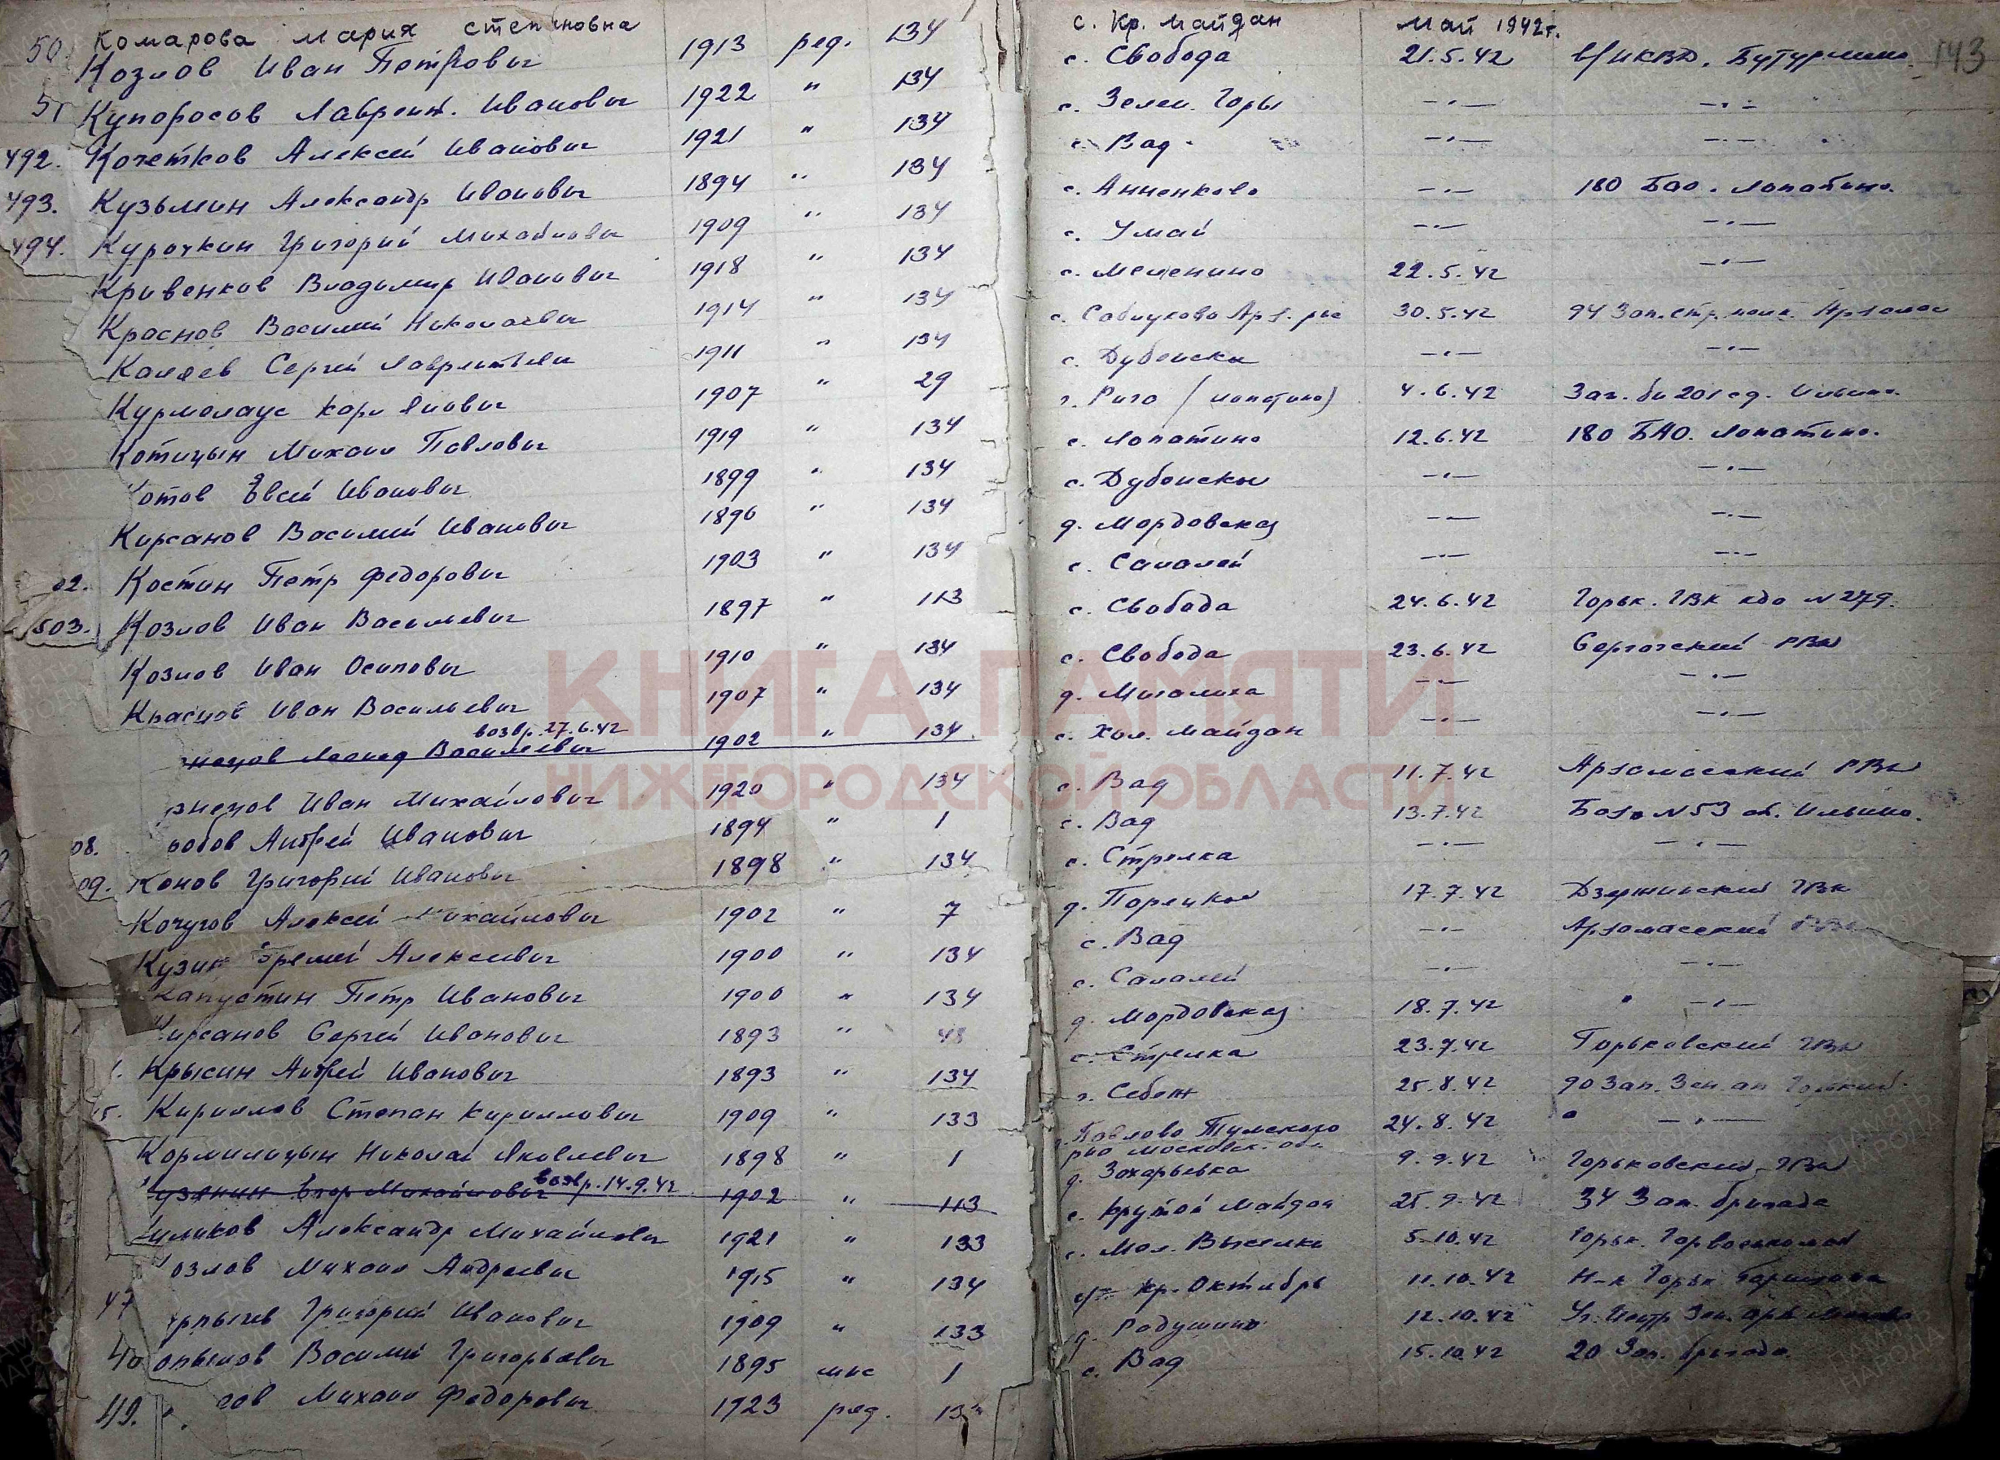 Комарова Мария Степановна с. Кр. Майдан Май 1942г.
50 Козлов Иван Петрович 1913 ряд. 134 с. Свобода 21.5.42 143
51 Купоросов Лаврент. Иванович 1922 " 134 с. Зелен. Горы —·— —·—
492. Кочетков Алексей Иванович 1921 " 134 с. Вад —·— —·—
493. Кузьмин Александр Иванович 1894 " 134 с. Анненково —·— 180 Бао. Лопатино.
494. Курочкин Григорий Михайлович 1909 " 134 с. Умай —·— —·—
Кривенков Владимир Иванович 1918 " 134 с. 22.5.42 —·—
Краснов Василий Николаевич 1914 " 134 с. 30.5.42 94 Зап. стр. полк. Арзамас
Каляев Сергей 1911 " 134 с. Дубенски —·— —·—
Курмолаус Карл Янович 1907 " 29 г. Рига (Лопатино) 4.6.42 201 сд. Ильино.
Котицын Михаил Павлович 1919 " 134 с. Лопатино 12.6.42 180 БАО. Лопатино.
отов Евсей Иванович 1899 " 134 с. Дубенски —·— —·—
Кирсанов Василий Иванович 1896 " 134 д. Мордовская —·— —·—
02. Костин Петр Федорович 1903 " 134 с. Салалей —·— —·—
503. Козлов Иван Васильевич 1897 " 113 с. Свобода 24.6.42 Горьк. ГВК кдо №279.
Козлов Иван Осипович 1910 " 134 с. Свобода 23.6.42 Сергачский РВК
Краснов Иван Васильевич 1907 " 134 д. Мигалиха —·— —·—
возвр. 27.6.42
нецов Леонид Васильевич 1902 " 134 с. Хол. Майдан —·— —·—
знецов Иван Михайлович 1920 " 134 с. Вад 11.7.42 Арзамасский РВК
08. робов Андрей Иванович 1894 " 1 с. Вад 13.7.42 База №53 ст. Ильино.
09. Конов Григорий Иванович 1898 " 134 с. Стрелка —·— —·—
Кочугов Алексей Михайлович 1902 " 7 д. Порецкое 17.7.42 Дзержинский ГВК
Кузин Еремей Алексеевич 1900 " 134 с. Вад —·— Арзамасский РВК
Капустин Петр Иванович 1900 " 134 с. Салалей —·— —·—
ирсанов Сергей Иванович 1893 " 48 д. Мордовская 18.7.42 " —·—
Крысин Андрей Иванович 1893 " 134 с. Стрелка 23.7.42 Горьковский ГВК
15. Кириллов Степан Кириллович 1909 " 133 г. Себеж 25.8.42 90 Зап. Зен. ап Горький.
Кормилицын Николай Яковлевич 1898 " 1 Павлово Тумского 24.8.42 " —·—
р-на Московск. обл.
возвр. 14.9.42
узянин Егор Михайлович 1902 " 113 д. Захарьевка 9.9.42 Горьковский ГВК
иликов Александр Михайлович 1921 " 133 с. Крутой Майдан 25.9.42 34 Зап. бригада
озлов Михаил Андреевич 1915 " 134 с. Мал. Выселки 5.10.42 Горьк. Горвоенкомат
47 Григорий Иванович 1909 " 133 Кр. Октябрь 11.10.42 Н-к Горьк. Гарнизона
опылов Василий Григорьевич 1895 мл/с 1 д. Радушино 12.10.42
49. гов Михаил Федорович 1923 ряд. с. Вад 15.10.42 20 Зап. бригада.
КНИГА ПАМЯТИ
НИЖЕГОРОДСКОЙ ОБЛАСТИ